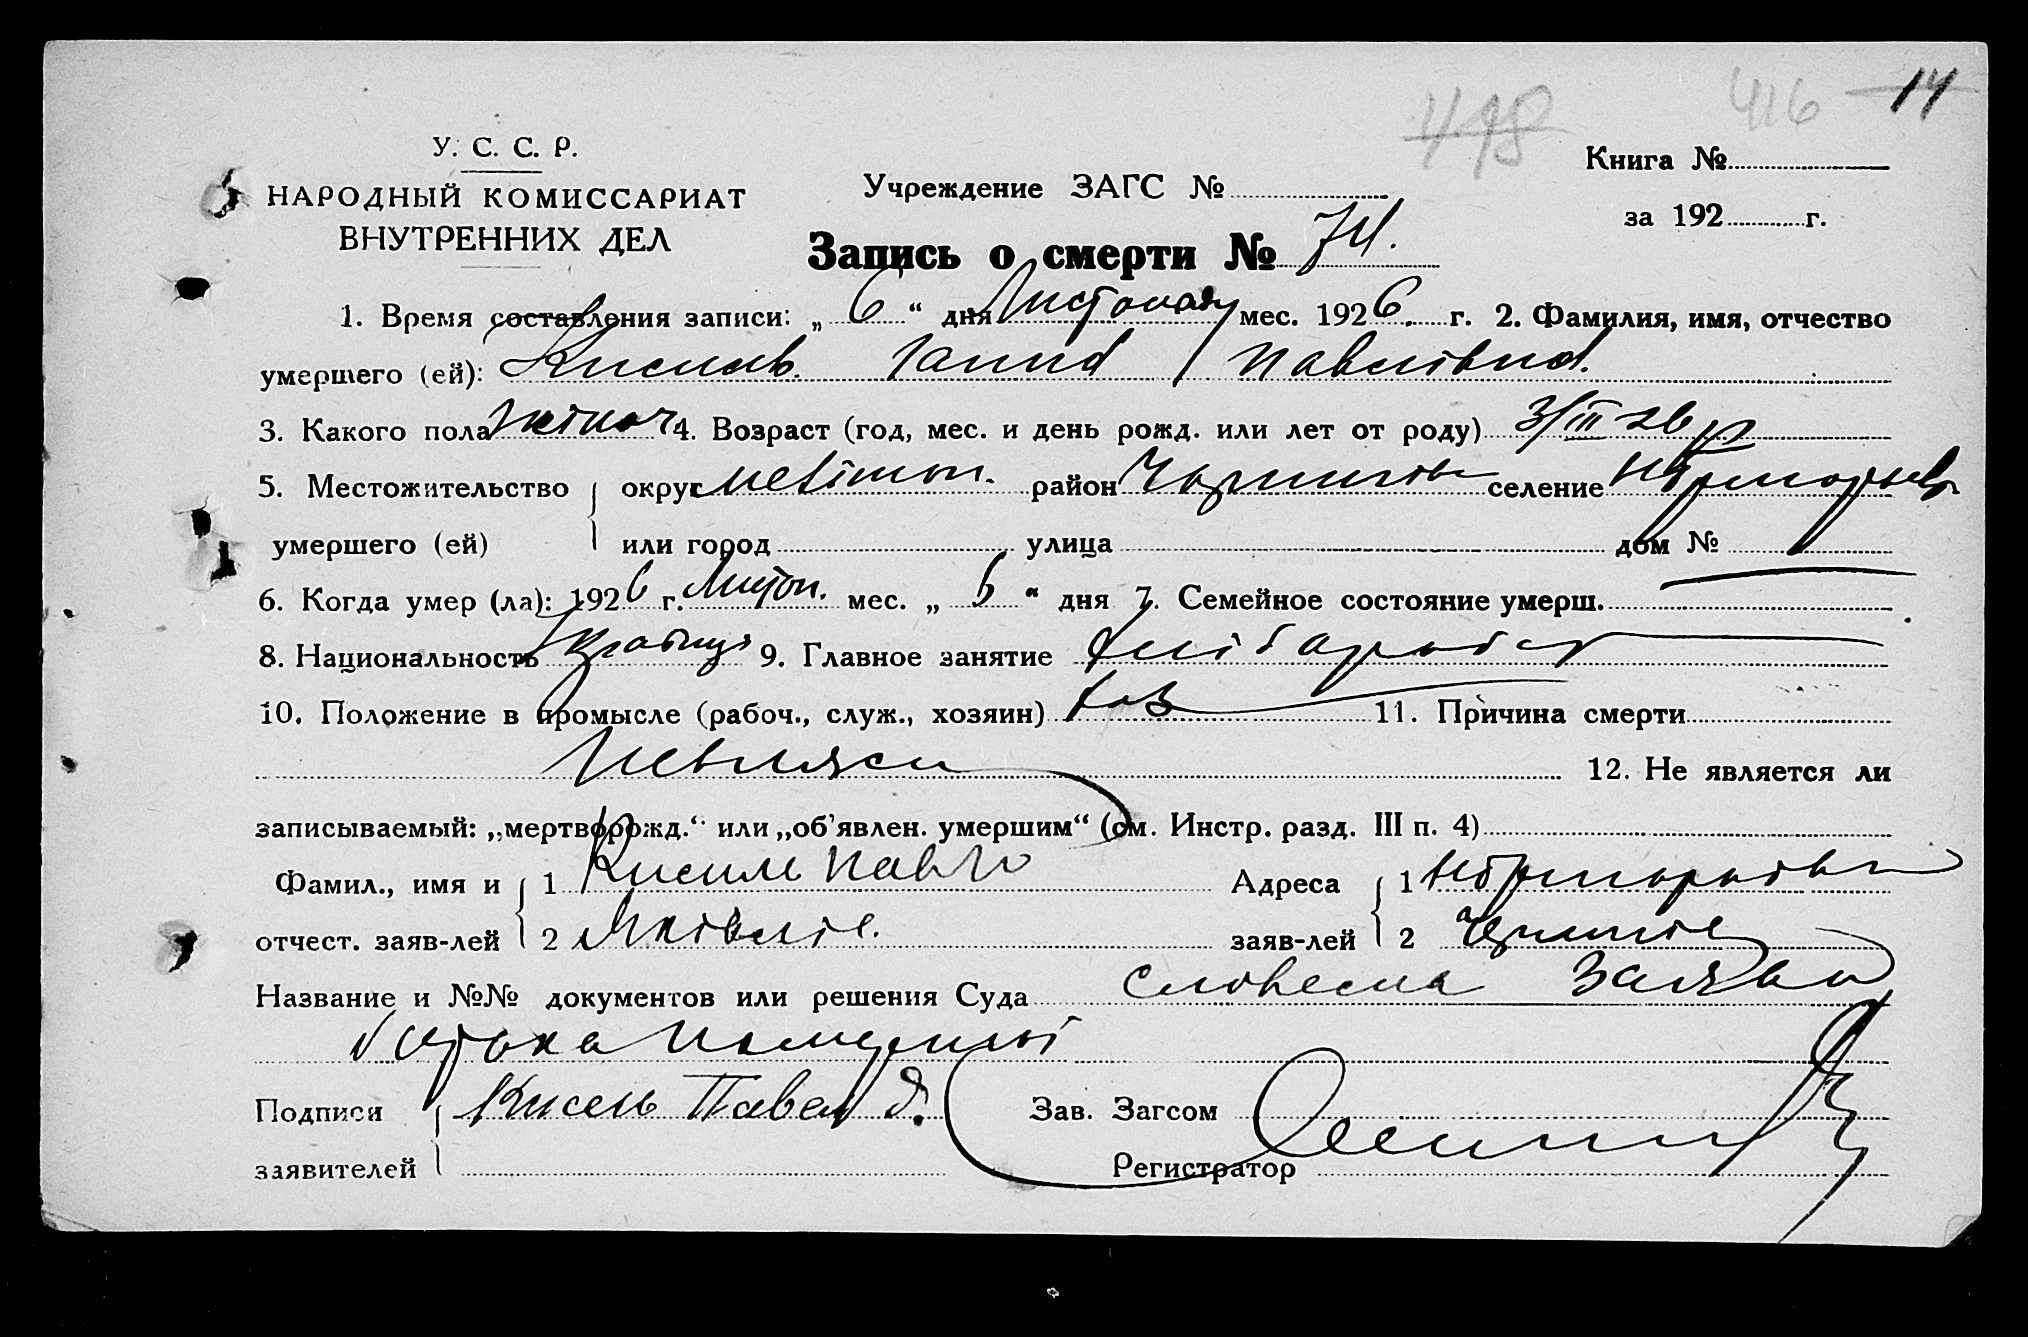 498 416 14
У. С. С. Р.
НАРОДНЫЙ КОМИССАРИАТ
ВНУТРЕННИХ ДЕЛ
Учреждение ЗАГС №
Книга №
за 192 г.
Запись о смерти № 74.
1. Время составления записи: „ 6 “ дня Листопаду мес. 1926. г. 2. Фамилия, имя, отчество
умершего (ей): Кисиль Ганна Павлівна.
3. Какого пола жіноч 4. Возраст (год, мес. и день рожд. или лет от роду) 3/III 26 р
5. Местожительство округ район селение
умершего (ей) или город улица дом №
6. Когда умер (ла): 1926 г. Листоп. мес. „ 5 “ дня 7. Семейное состояние умерш.
8. Национальность 9. Главное занятие хлібороб
10. Положение в промысле (рабоч., служ., хозяин) 11. Причина смерти
12. Не является ли
записываемый: „мертворожд.“ или „об’явлен. умершим“ (см. Инстр. разд. III п. 4)
Фамил., имя и 1 Кисиль Павло Адреса 1
отчест. заяв-лей 2 Яковлев. заяв-лей 2
Название и №№ документов или решения Суда словесна заява
батька
Подписи Кисель Павел Я. Зав. Загсом
заявителей Регистратор